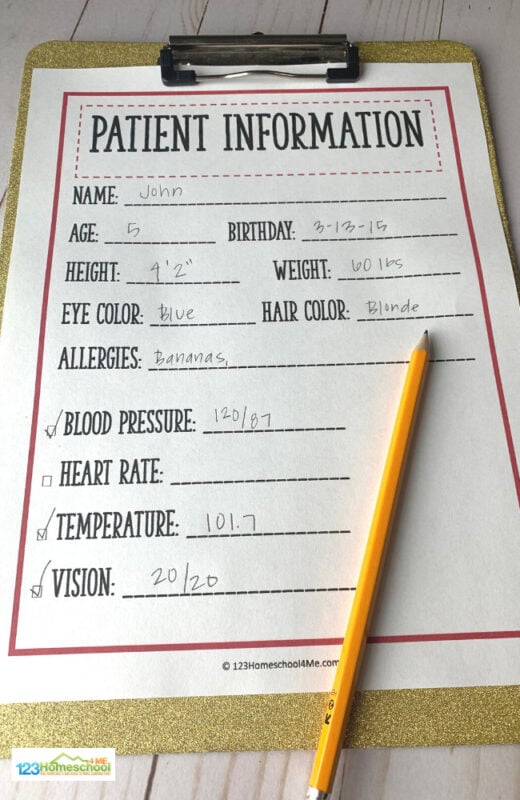 PATIENT INFORMATION
NAME: John
AGE: 5 BIRTHDAY: 3-13-15
HEIGHT: 4'2" WEIGHT: 60 lbs
EYE COLOR: Blue HAIR COLOR: Blonde
ALLERGIES: Bananas,
BLOOD PRESSURE: 120/87
HEART RATE:
TEMPERATURE: 101.7
VISION: 20/20
© 123Homeschool4Me.com
123Homeschool 4 ME